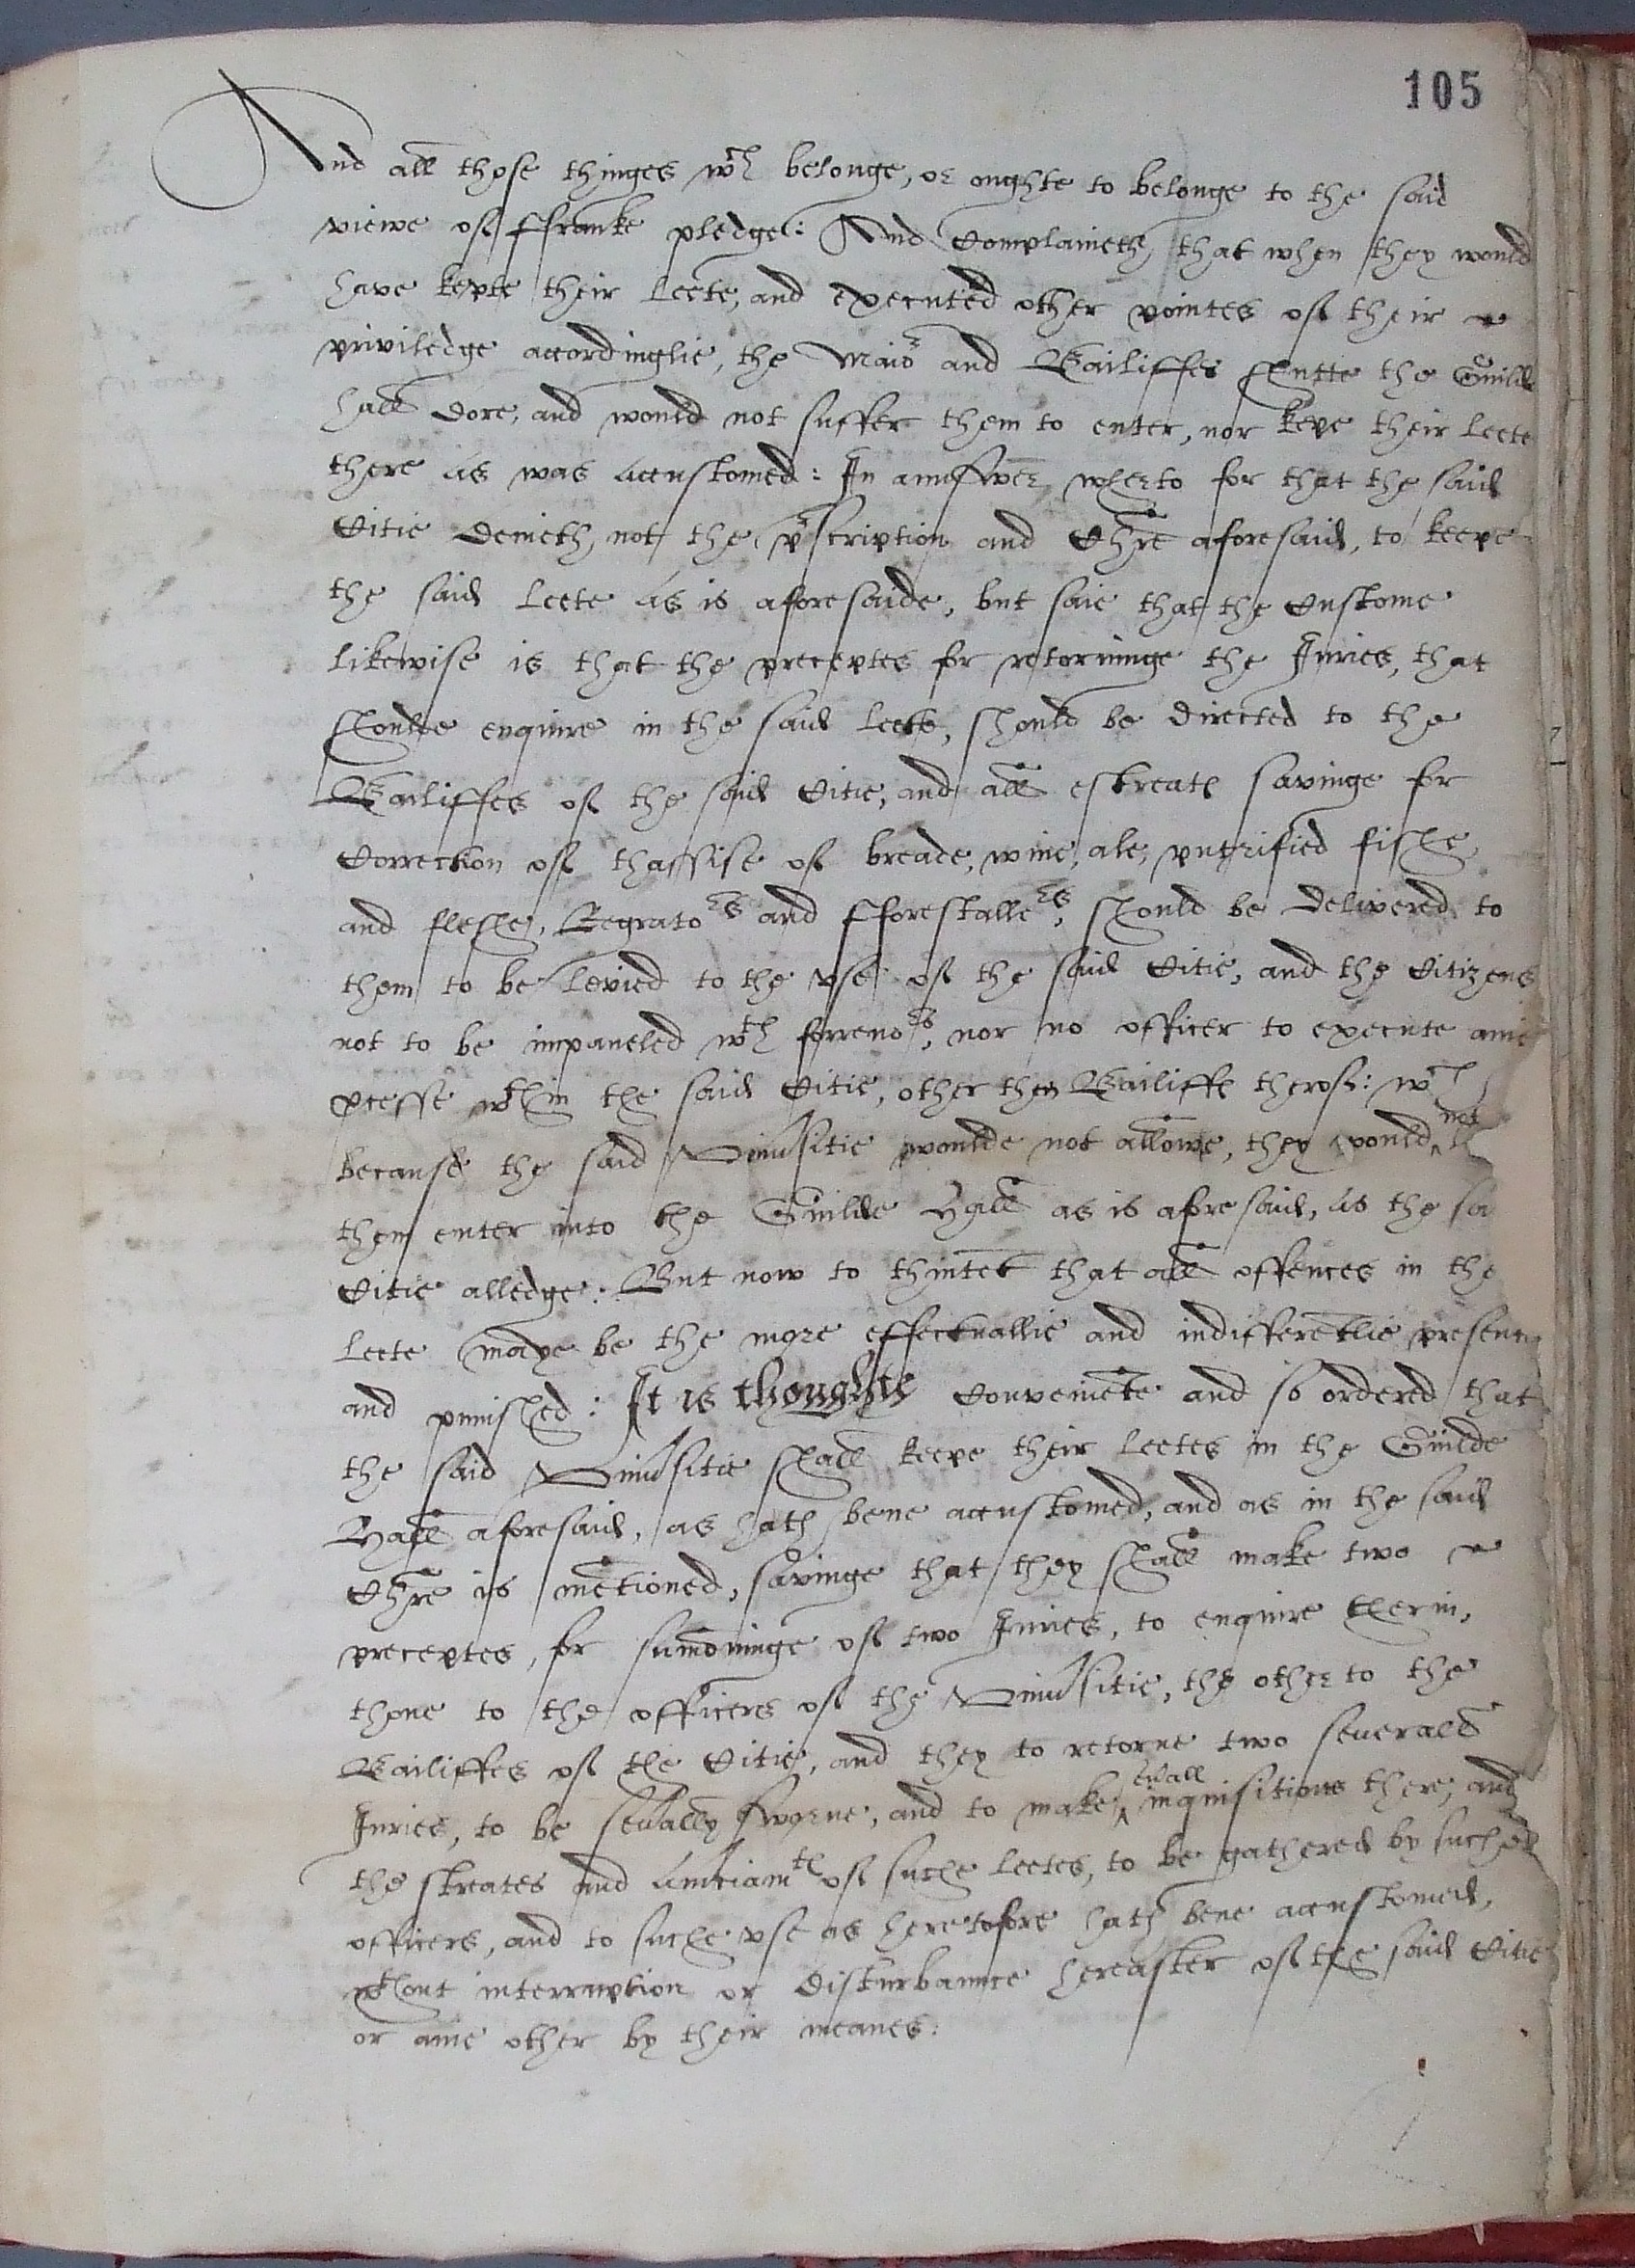 105
And all those thinges wch belonge, or oughte to belonge to the said
viewe of ffranke pledge: And Complaineth, that when they would
have kepte their leete, and executed other pointes of their
priviledge accordinglie, the Maior and Bailiffes shutte the Guilde
hall dore, and would not suffer them to enter, nor kepe their leete
there as was accustomed: In aunswer wherto for that the said
Citie denieth, not the pscription and Chre aforesaid, to keepe
the said leete as is aforesaide, but saie that the Custome
likewise is that the preceptes for retorninge the Juries, that
shoulde enquire in the said leete, should be directed to the
Bailiffes of the said Citie, and all estreates savinge for
Correction of thassise of breade, wine, ale, putrified fishe,
and fleshe, Regrators and fforestallers, should be delivered to
them to be levied to the vse of the said Citie, and the Citizens
not to be impaneled wth forrenors, nor no officer to execute anie
pcesse wthin the said Citie, other then Bailiffes therof: wch
because the said Vniusitie woulde not allowe, they would not
them enter into the Guilde Hall as is aforesaid, as the sa
Citie alledge: But now to thintet that all offences in the
leete maye be the more effectuallie and indifferetlie present
and punished: It is thoughte Conveniete and so ordered that
the said Vniusitie shall keepe their leetes in the Guilde
Hall aforesaid, as hath bene accustomed, and as in the said
Chre is metioned, savinge that they shall make two
preceptes, for sumoninge of two Juries, to enquire therin,
thone to the officers of the Vniusitie, the other to the
Bailiffes of the Citie, and they to retorne two severall
Juries, to be seually sworne, and to make seuall inquisitions there, and
the streates and amciamtes of suche leetes, to be gathered by suche
officers, and to suche vse as heretofore hath bene accustomed,
wthout interruption or disturbaunce hereafter of the said Citie
or anie other by their meanes: